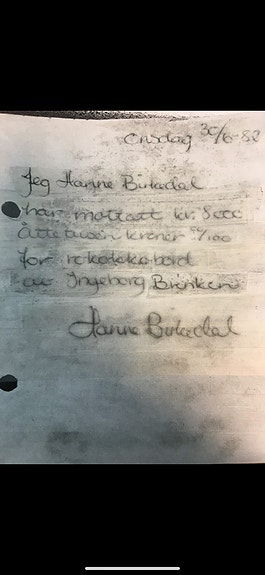 onsdag 30/6-82
Jeg Hanne Birkedal
har mottatt kr. 8000
åttetusen kroner 00/100
for rokokkobord
av Ingeborg Brinken
Hanne Birkedal